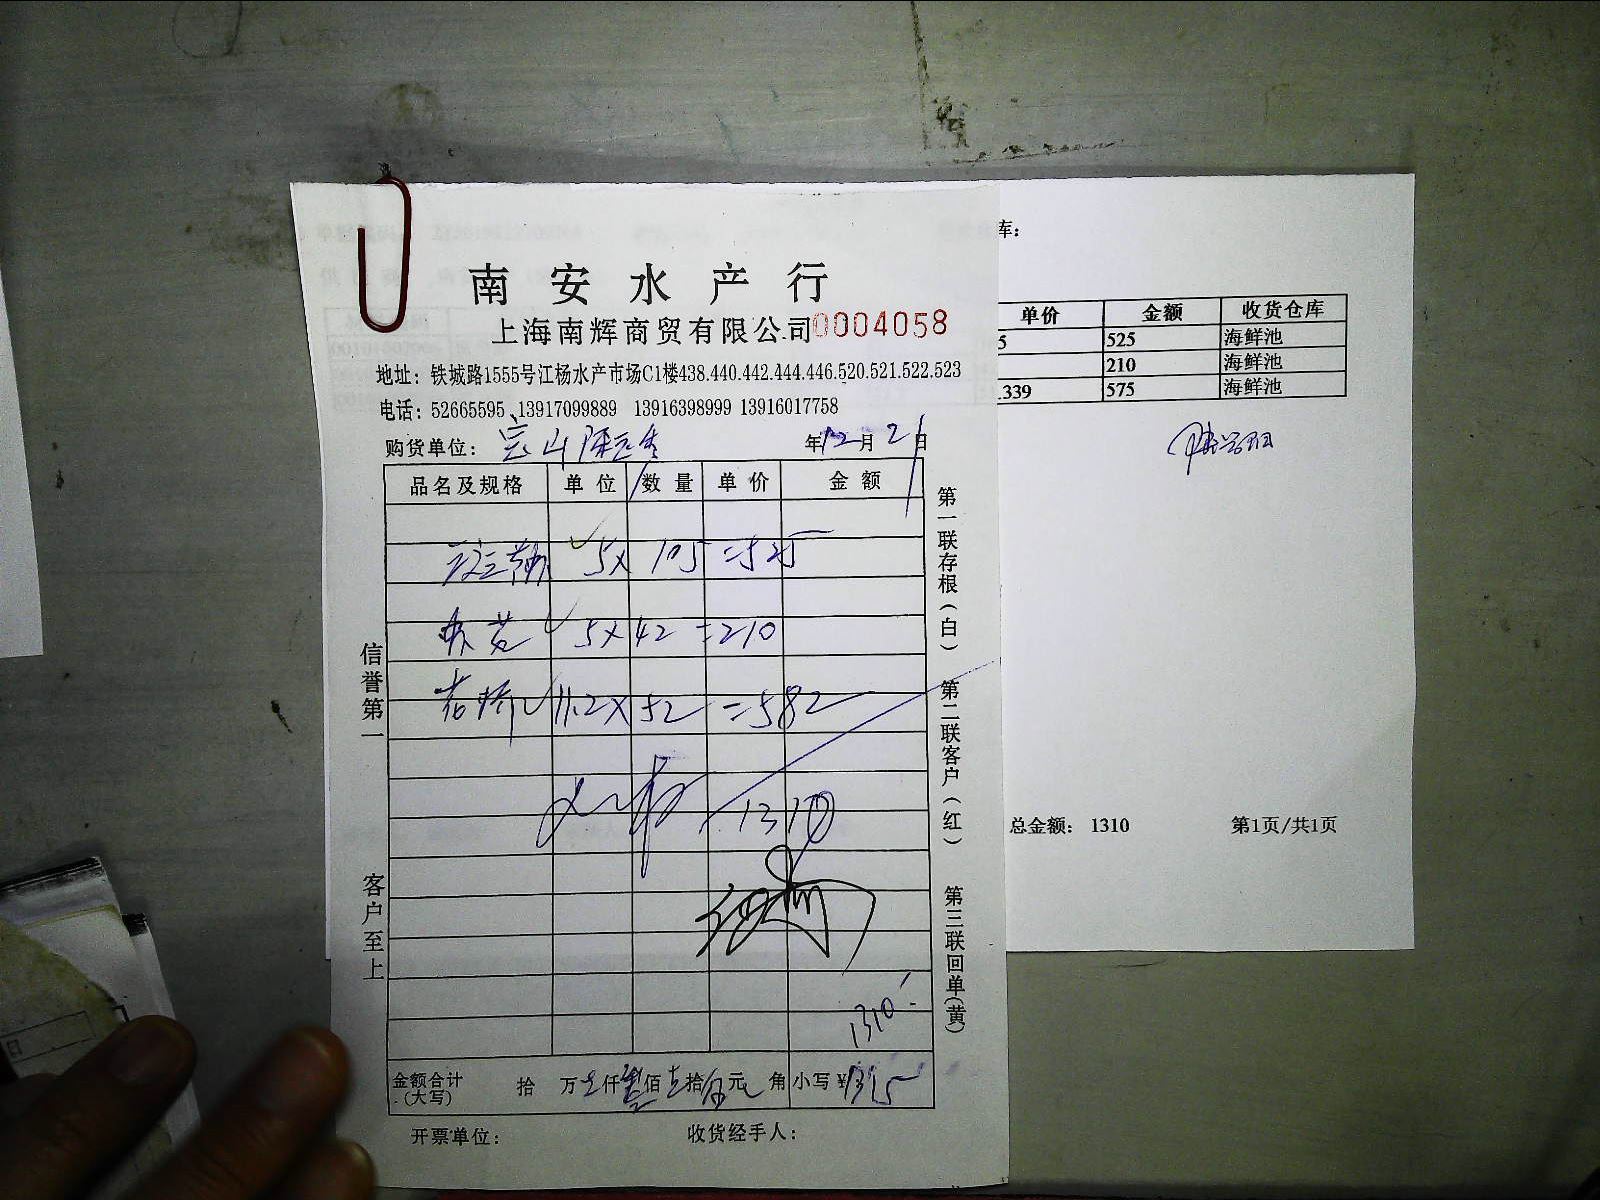 南安水产行
上海南辉商贸有限公司 0004058
地址：铁城路1555号江杨水产市场C1楼438.440.442.444.446.520.521.522.523
电话：52665595 13917099889 13916398999 13916017758
购货单位： 年12月21日
品名及规格 单位 数量 单价 金额
5× 105 =525
5×42 =210
11.2×52 =582
1310
1310
金额合计(大写) 拾 万 仟 佰 拾 元 角 小写¥1315
开票单位： 收货经手人：
信誉第一
客户至上
第一联存根(白)
第二联客户(红)
第三联回单(黄)
库：
单价 金额 收货仓库
5 525 海鲜池
210 海鲜池
.339 575 海鲜池
总金额： 1310 第1页/共1页